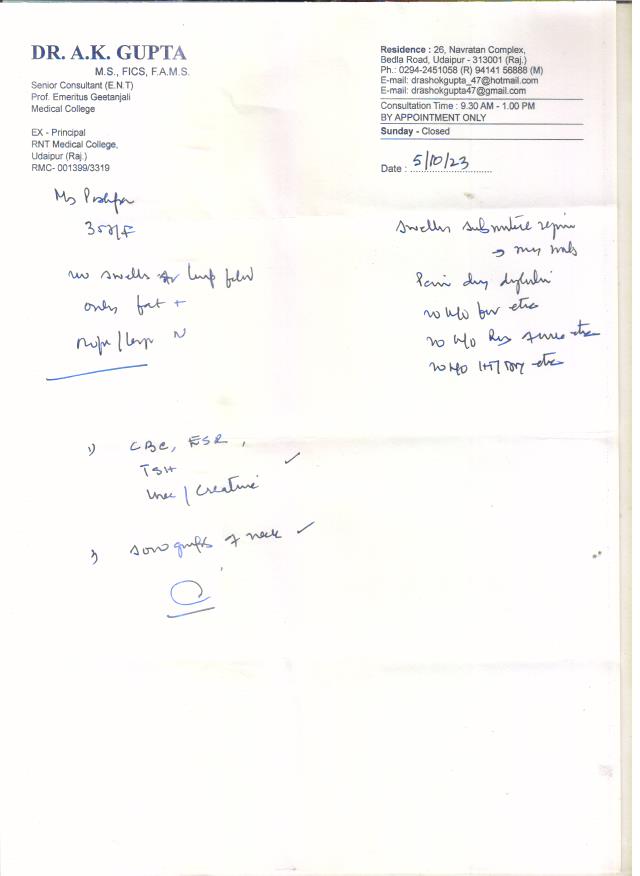 DR. A.K. GUPTA
M.S., FICS, F.A.M.S.
Senior Consultant (E.N.T)
Prof. Emeritus Geetanjali
Medical College
EX - Principal
RNT Medical College,
Udaipur (Raj.)
RMC- 001399/3319
Residence : 26, Navratan Complex,
Bedla Road, Udaipur - 313001 (Raj.)
Ph.: 0294-2451058 (R) 94141 56888 (M)
E-mail: drashokgupta_47@hotmail.com
E-mail: drashokgupta47@gmail.com
Consultation Time : 9.30 AM - 1.00 PM
BY APPOINTMENT ONLY
Sunday - Closed
Date : 5/10/23
Ms
no swelling or lump
only fat +
N
swelling
Pain
no H/o
no H/o
no H/o HT/
1) CBC, ESR,
TSH
Urea / Creatinine
2) Sonography of neck